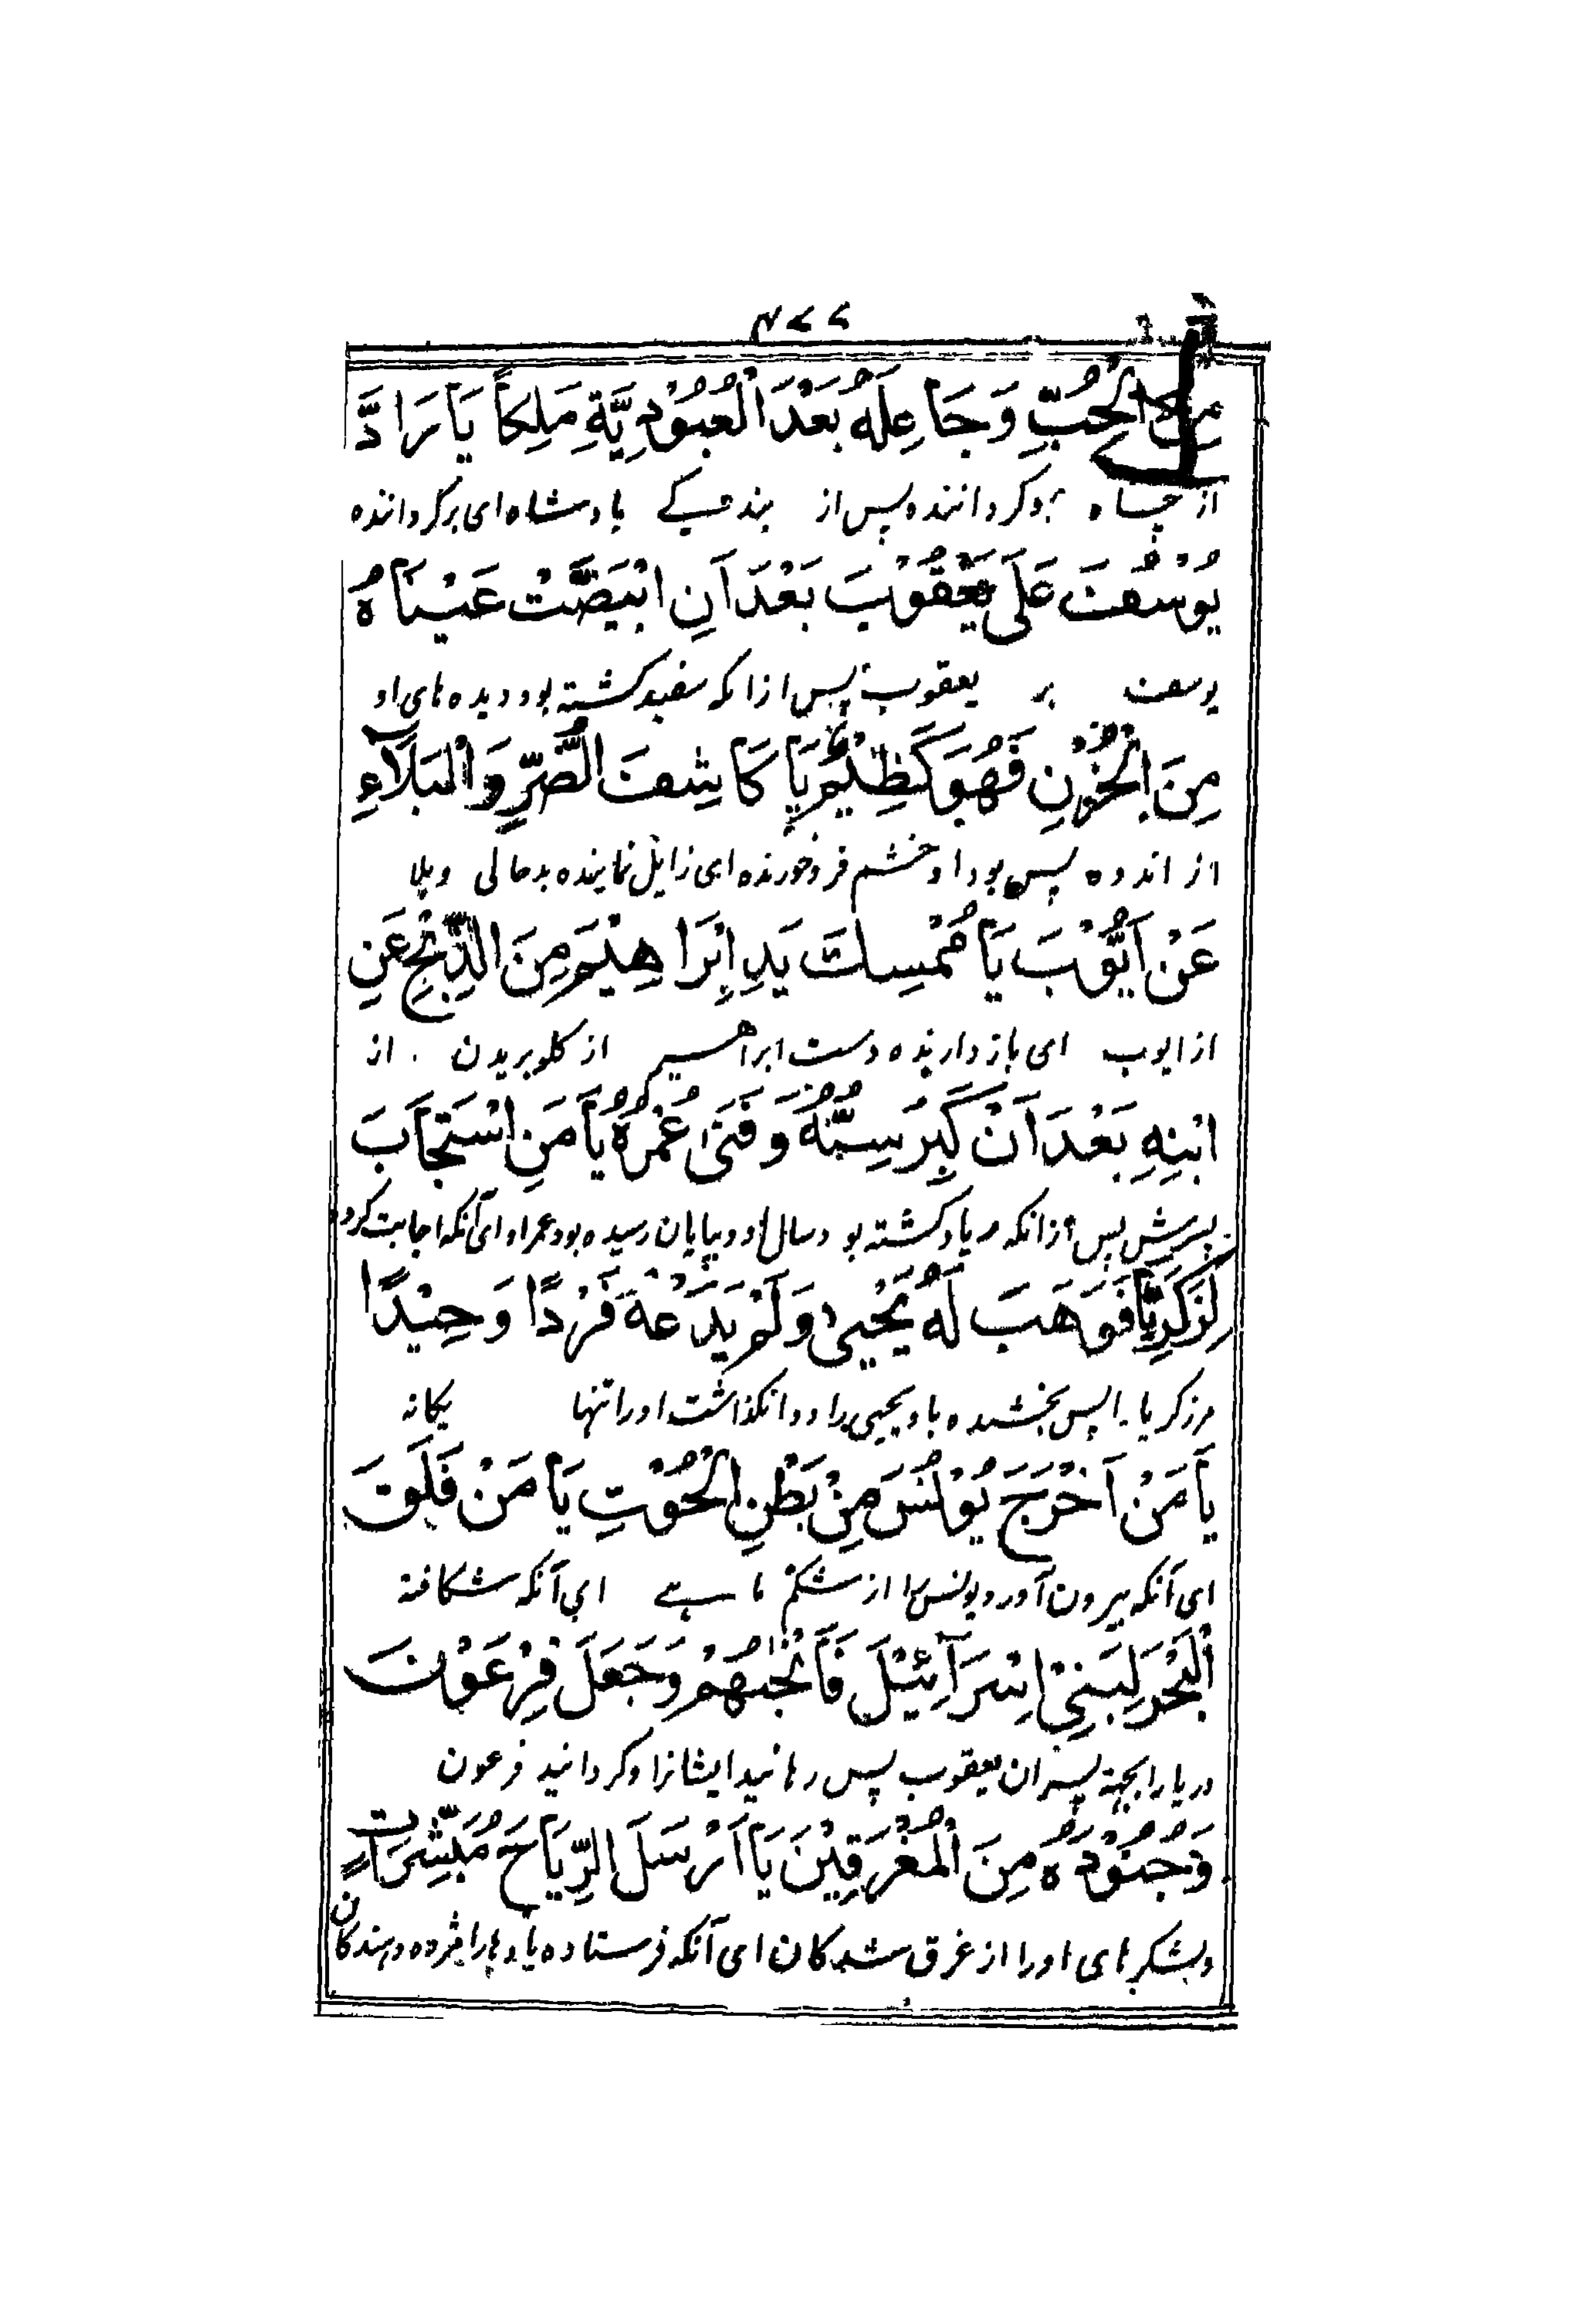 ۴۷۷
مِنَ الْجُبِّ وَجَاعِلَهُ بَعْدَ الْعُبُوْدِيَّةِ مَلِكاً يَا رَادَّ
از چاه و گرداننده پس از بندگے پادشاه ای برگرداننده
يُوْسُفَ عَلَى يَعْقُوْبَ بَعْدَ اَنِ ابْيَضَّتْ عَيْنَاهُ
یوسف بر یعقوب پس ازانکه سفید کشته بود دیده های او
مِنَ الْحُزْنِ فَهُوَ كَظِيْمٌ يَا كَاشِفَ الضُّرِّ وَالْبَلَاءِ
از اندوه پس بود او خشم فروخورنده ای زایل نماینده بدحالی وبلا
عَنْ اَيُّوْبَ يَا مُمْسِكَ يَدِ اِبْرَاهِيْمَ مِنَ الذِّبْحِ عَنِ
از ایوب ای بازدارنده دست ابراهیم از کلو بریدن . از
ابْنِهِ بَعْدَ اَنْ كَبِرَ سِنُّهُ وَفَنَى عُمْرُهُ يَا مَنِ اسْتَجَابَ
پسرش پس ازانکه زیاد کشته بود سال او و بپایان رسیده بود عمر او ای آنکه اجابت کرد
لِزَكَرِيَّا فَوَهَبَ لَهُ يَحْيى وَلَمْ يَدَعْهُ فَرْدًا وَحِيْدًا
مرزکریا را پس بخشیده باو یحیی را و وانکذاشت اورا تنها یکانه
يَا مَنْ اَخْرَجَ يُوْنُسَ مِنْ بَطْنِ الْحُوْتِ يَا مَنْ فَلَقَ
ای آنکه بیرون آورد یونس را از شکم ماهے ای آنکه شکافته
الْبَحْرَ لِبَنِيْ اِسْرَآئِيْلَ فَاَنْجٰىهُمْ وَجَعَلَ فِرْعَوْنَ
دریا را بجهة پسران یعقوب پس رهانید ایشانرا وکردانید فرعون
وَجُنُوْدَهُ مِنَ الْمُغْرَقِيْنَ يَا اَرْسَلَ الرِّيَاحَ مُبَشِّرَاتٍ
ولشکرهای اورا از غرق شدکان ای آنکه فرستاده بادها را مژده دهندکان